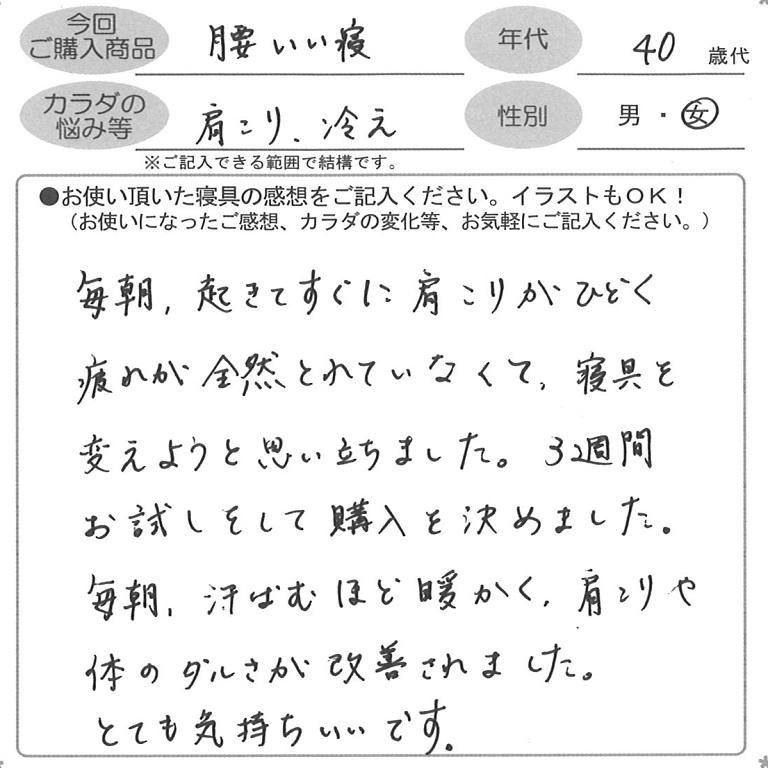 今回
ご購入商品
腰いい寝
年代
40 歳代
カラダの
悩み等
肩こり、冷え
性別
男・女
※ご記入できる範囲で結構です。
●お使い頂いた寝具の感想をご記入ください。イラストもＯＫ！
（お使いになったご感想、カラダの変化等、お気軽にご記入ください。）
毎朝，起きてすぐに肩こりがひどく
疲れが全然とれていなくて、寝具を
変えようと思い立ちました。3週間
お試しをして購入を決めました。
毎朝、汗ばむほど暖かく、肩こりや
体のダルさが改善されました。
とても気持ちいいです．